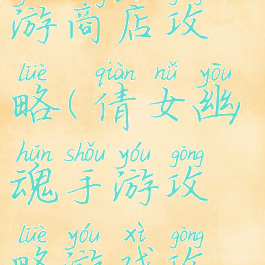 游商店攻
lüè qiàn nǚ yōu
略(倩女幽
hún shǒu yóu gōng
魂手游攻
lüè yóu xì gōng
略游戏攻